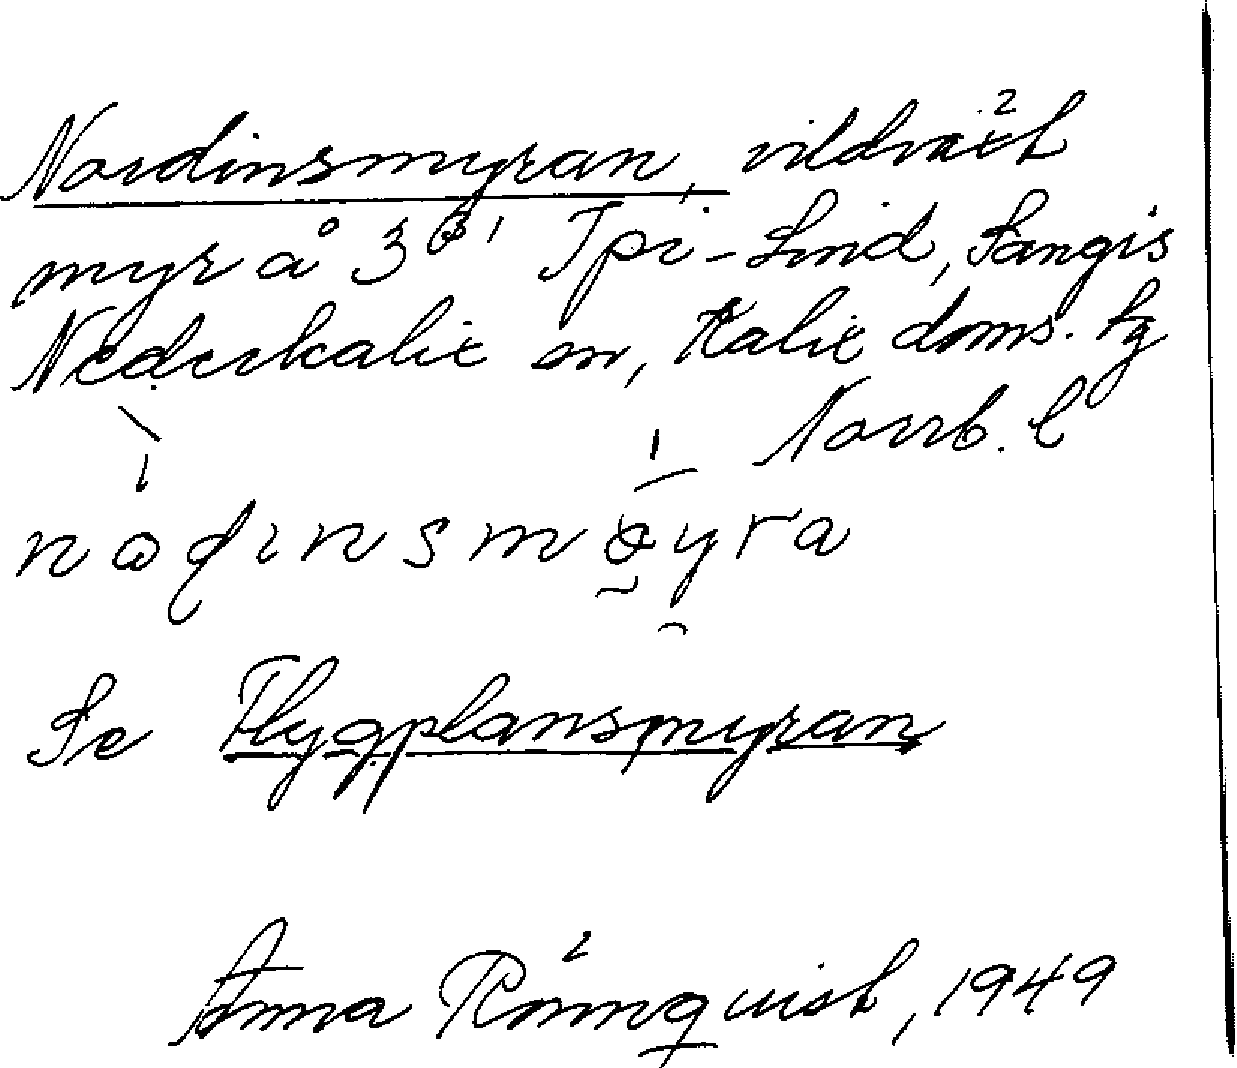 Nordinsmyran, vildväxt
myr å 3 Tpi-Lind, Sangis
Nederkalix sn, Kalix doms. lg
Norrb. l
nodinsmøyra
Se Flygplansmyran
Anna Rönnquist, 1949